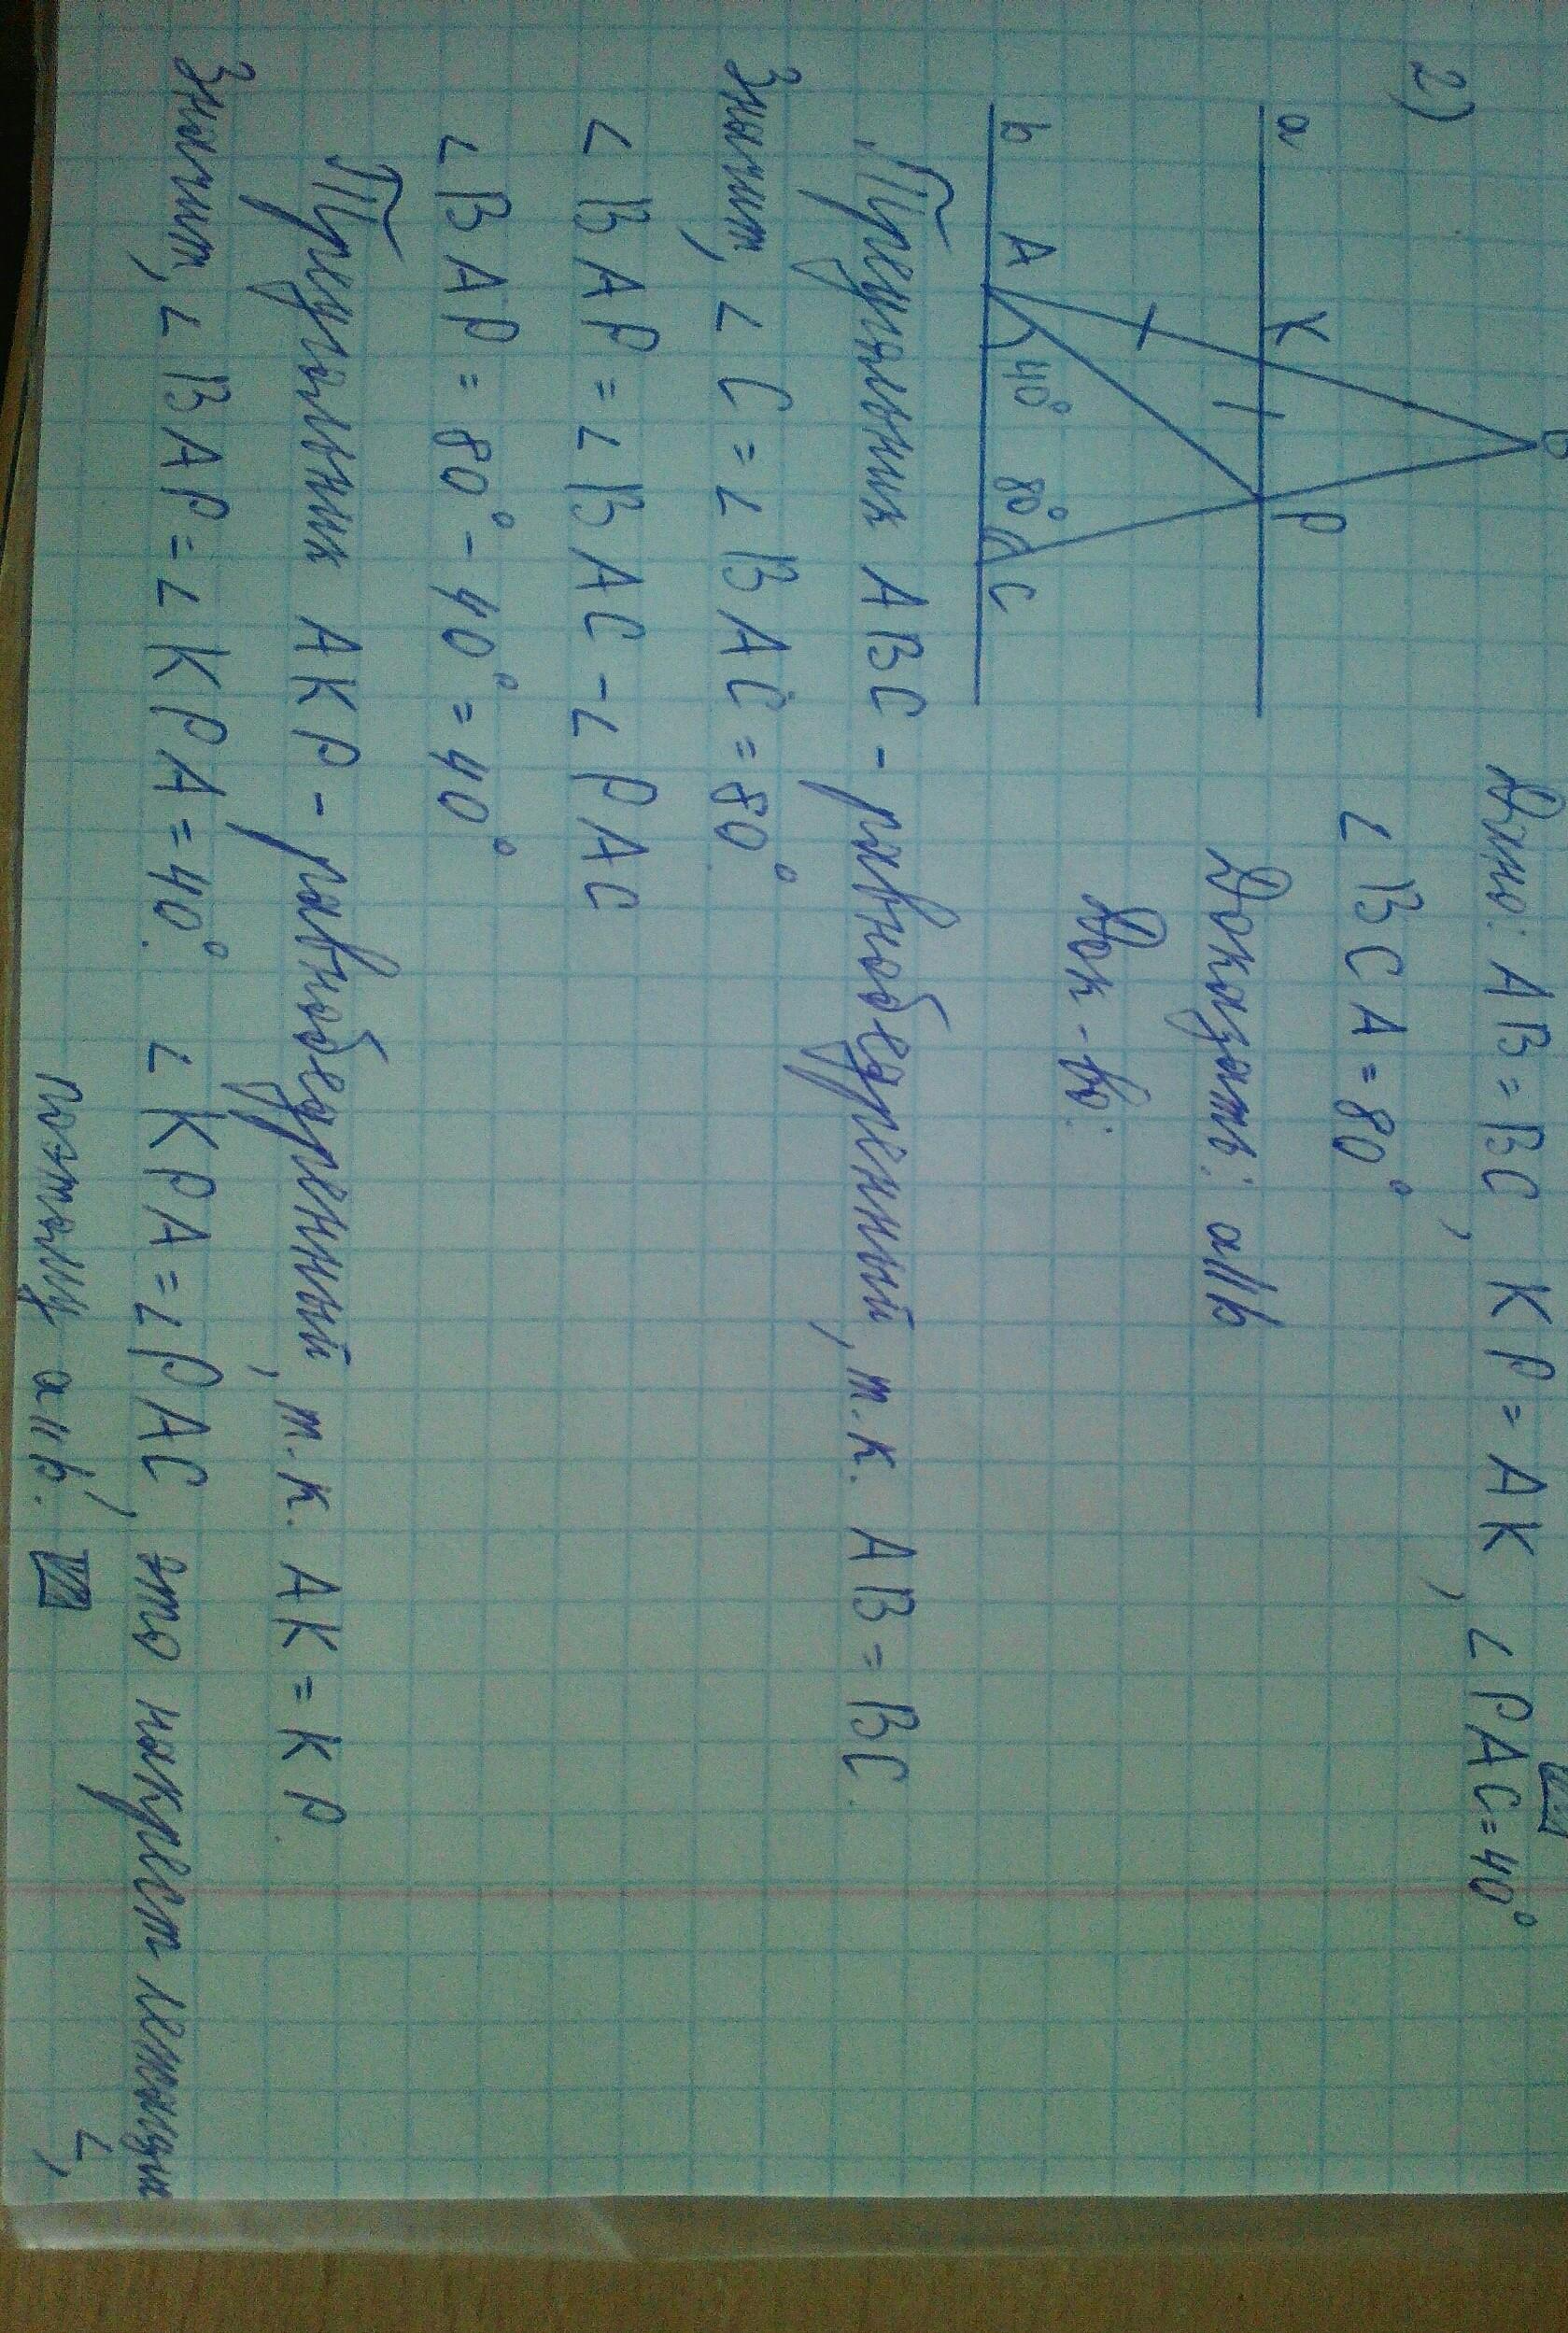 2)
Дано: AB = BC, KP = AK, ∠PAC = 40°
∠BCA = 80°
Доказать: a||b
Док-во:
a K P
B
b A 40° 80° C
Треугольник ABC - равнобедренный, т.к. AB = BC.
Значит, ∠C = ∠BAC = 80°
∠BAP = ∠BAC - ∠PAC
∠BAP = 80° - 40° = 40°
Треугольник AKP - равнобедренный, т.к. AK = KP.
Значит, ∠BAP = ∠KPA = 40°. ∠KPA = ∠PAC, это накрест лежащии ∠,
поэтому a||b.